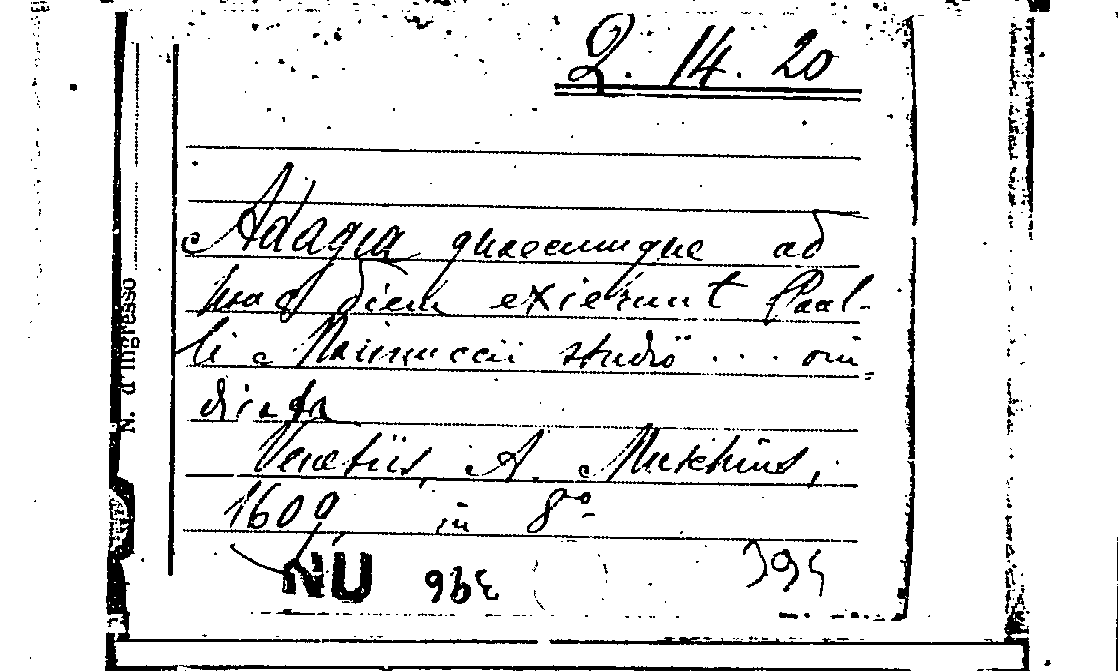 2. 14. 20
Adagia quaecumque ad
hanc diem exierunt Paul-
li Mannuccii studio ... 
Venetiis, A. Muschius,
1609, in 8º
N. d'ingresso
NU